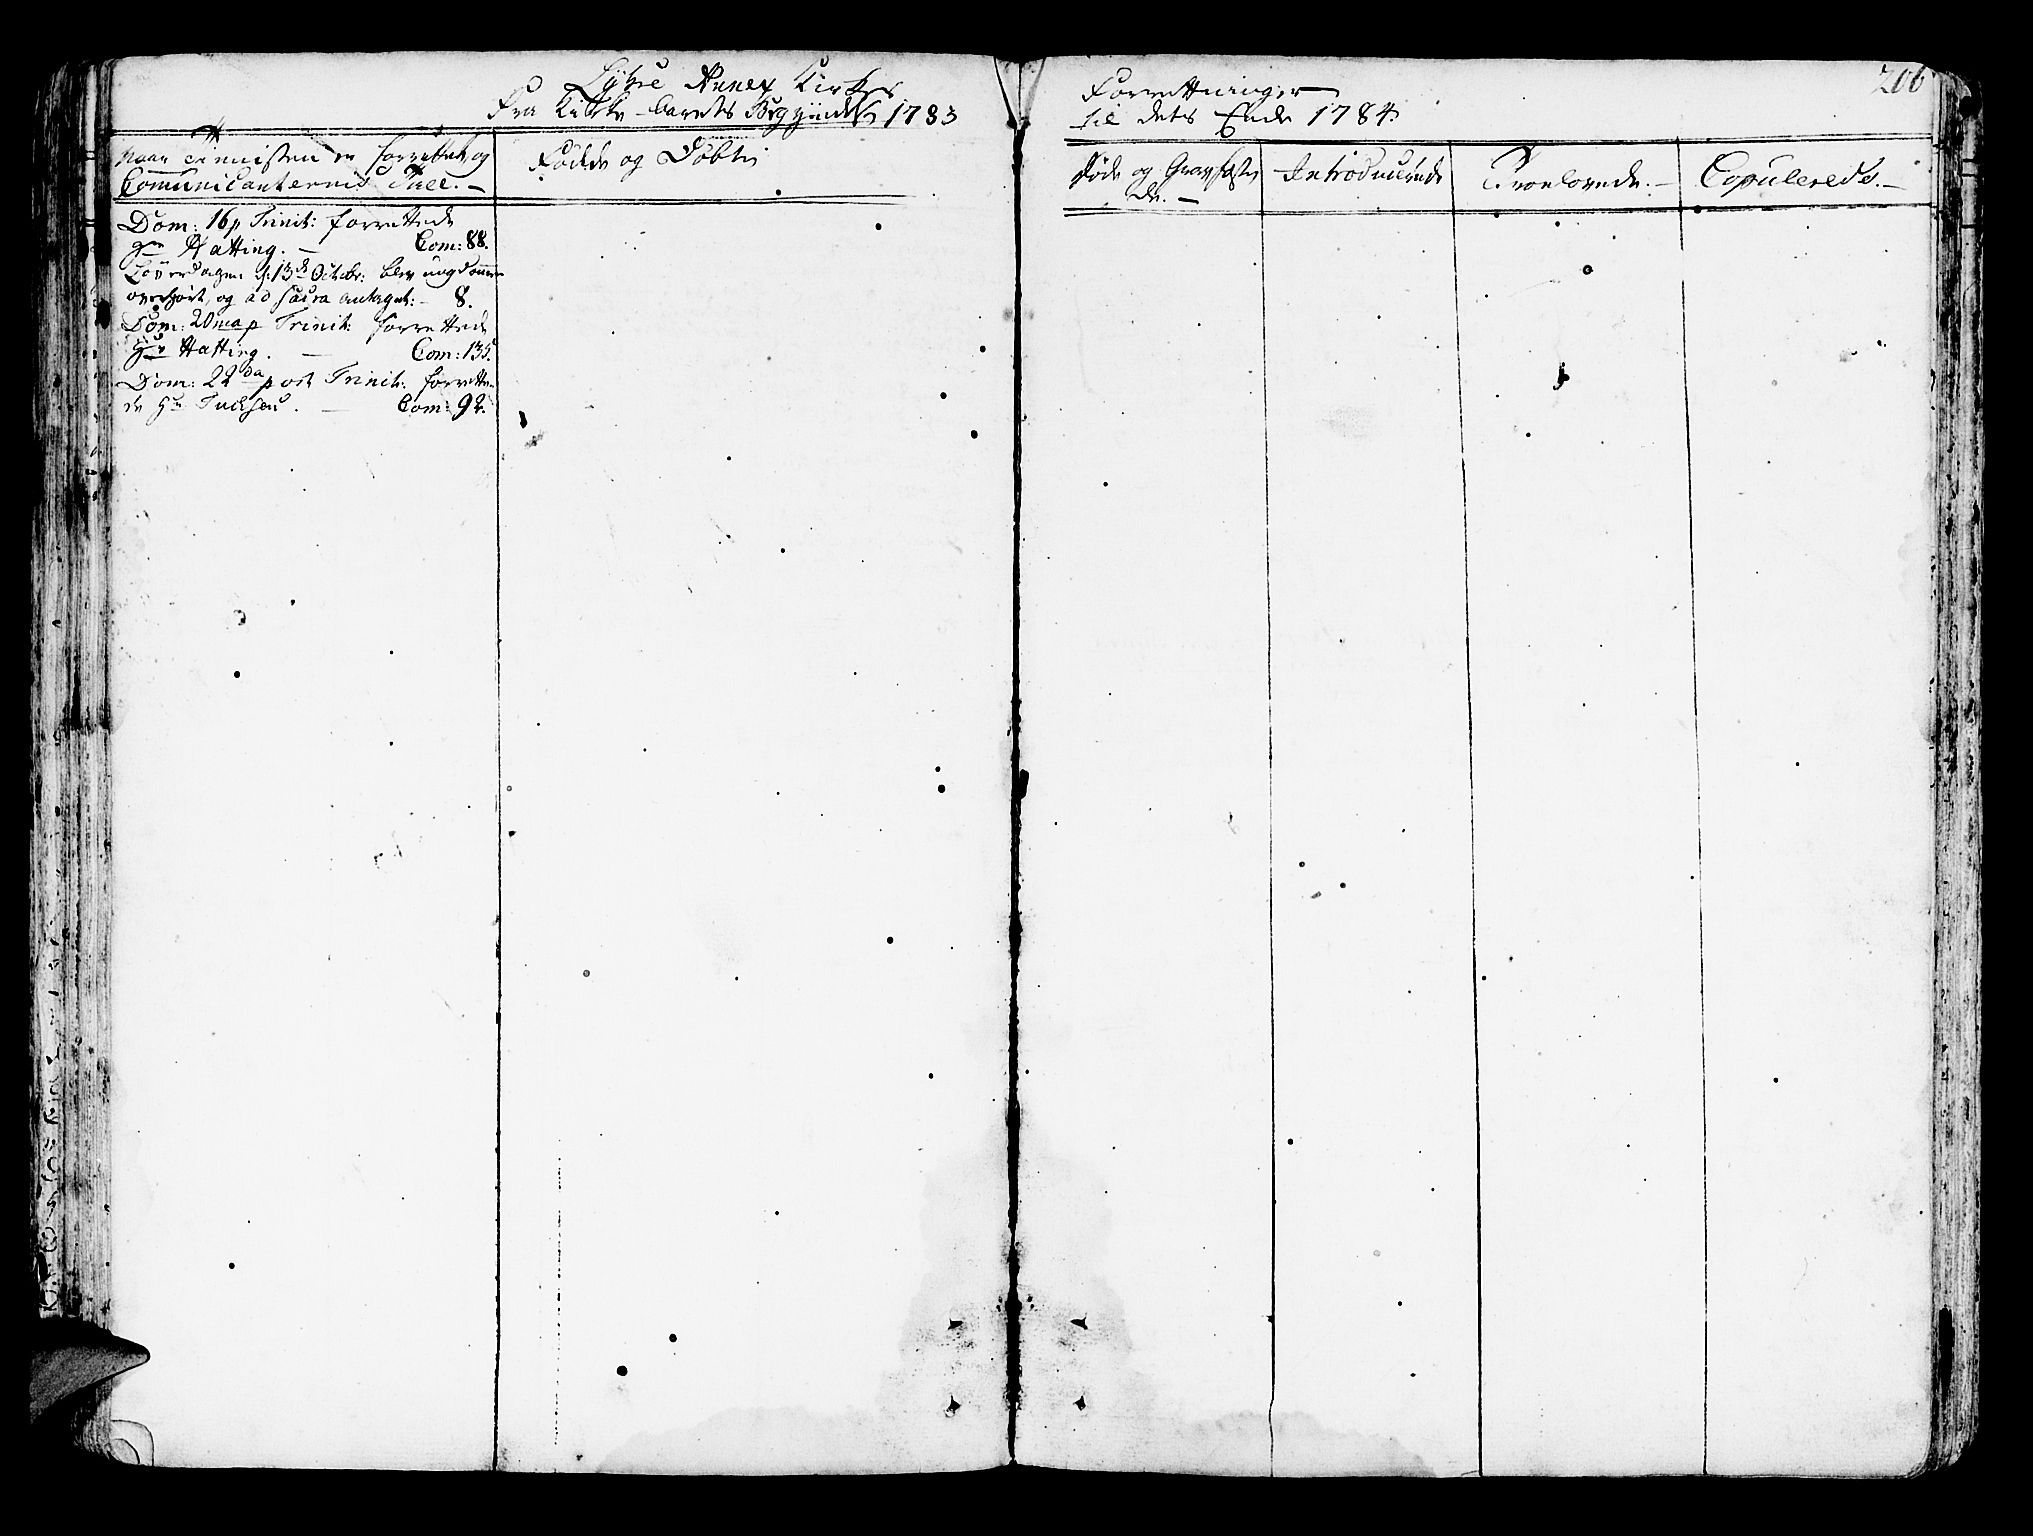 Lyhse Annex Kirkes
Fra Kirke-Aarets Begyndelse 1783
Forrettninger
til dets Ende 1784.
206
Naar Tienisten er forrettet, og
Comunicanternis Tall. —
Fødde og Døbte
Døde og Gravfæste
de. —
Introducerede
Troelovede. —
Copulerede. —
Dom: 16 p Trinit: forrettede
Hr Hatting. — Com: 88.
Løverdagen d: 13de Octobr: blev ungdommen
overhørt, og ad sacra antaget: — 8.
Dom: 20ma p Trinit: forrettede
Hr Hatting. — Com: 135.
Dom: 22da post Trinit: forrette-
de Hr Tuchsen. — Com: 92.